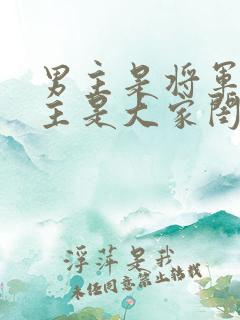 男主是将军
主是大家闺
浮萍是我
未经同意禁止转载